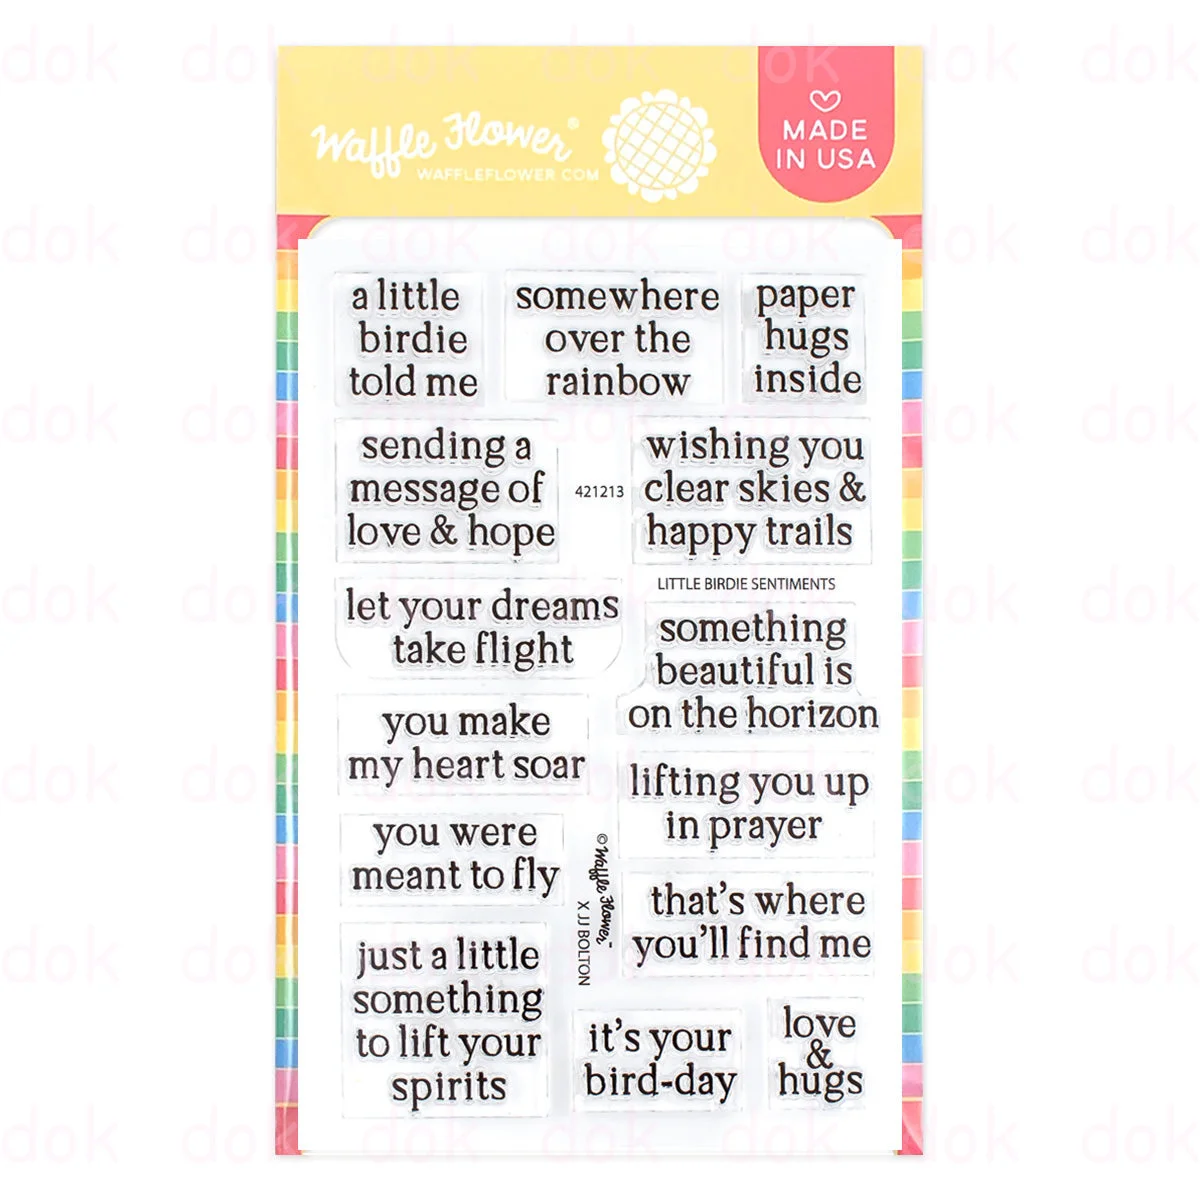 Waffle Flower®
WAFFLEFLOWER.COM
MADE
IN USA
a little
birdie
told me
somewhere
over the
rainbow
paper
hugs
inside
sending a
message of
love & hope
421213
wishing you
clear skies &
happy trails
LITTLE BIRDIE SENTIMENTS
let your dreams
take flight
something
beautiful is
on the horizon
you make
my heart soar
lifting you up
in prayer
you were
meant to fly
© Waffle Flower™
X JJ BOLTON
that's where
you'll find me
just a little
something
to lift your
spirits
it's your
bird-day
love
&
hugs
dok